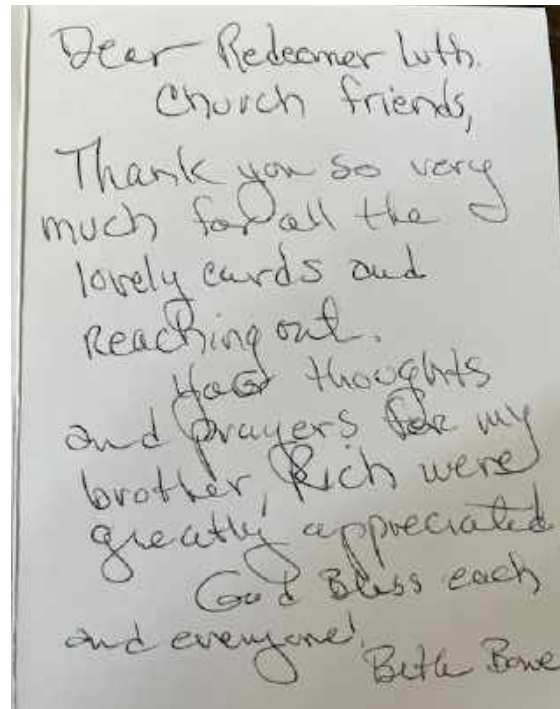 Dear Redeemer Luth.
Church friends,
Thank you so very
much for all the
lovely cards and
Reaching out.
Your thoughts
and prayers for my
brother, Rich were
greatly appreciated
God Bless each
and everyone!
Beth Bone